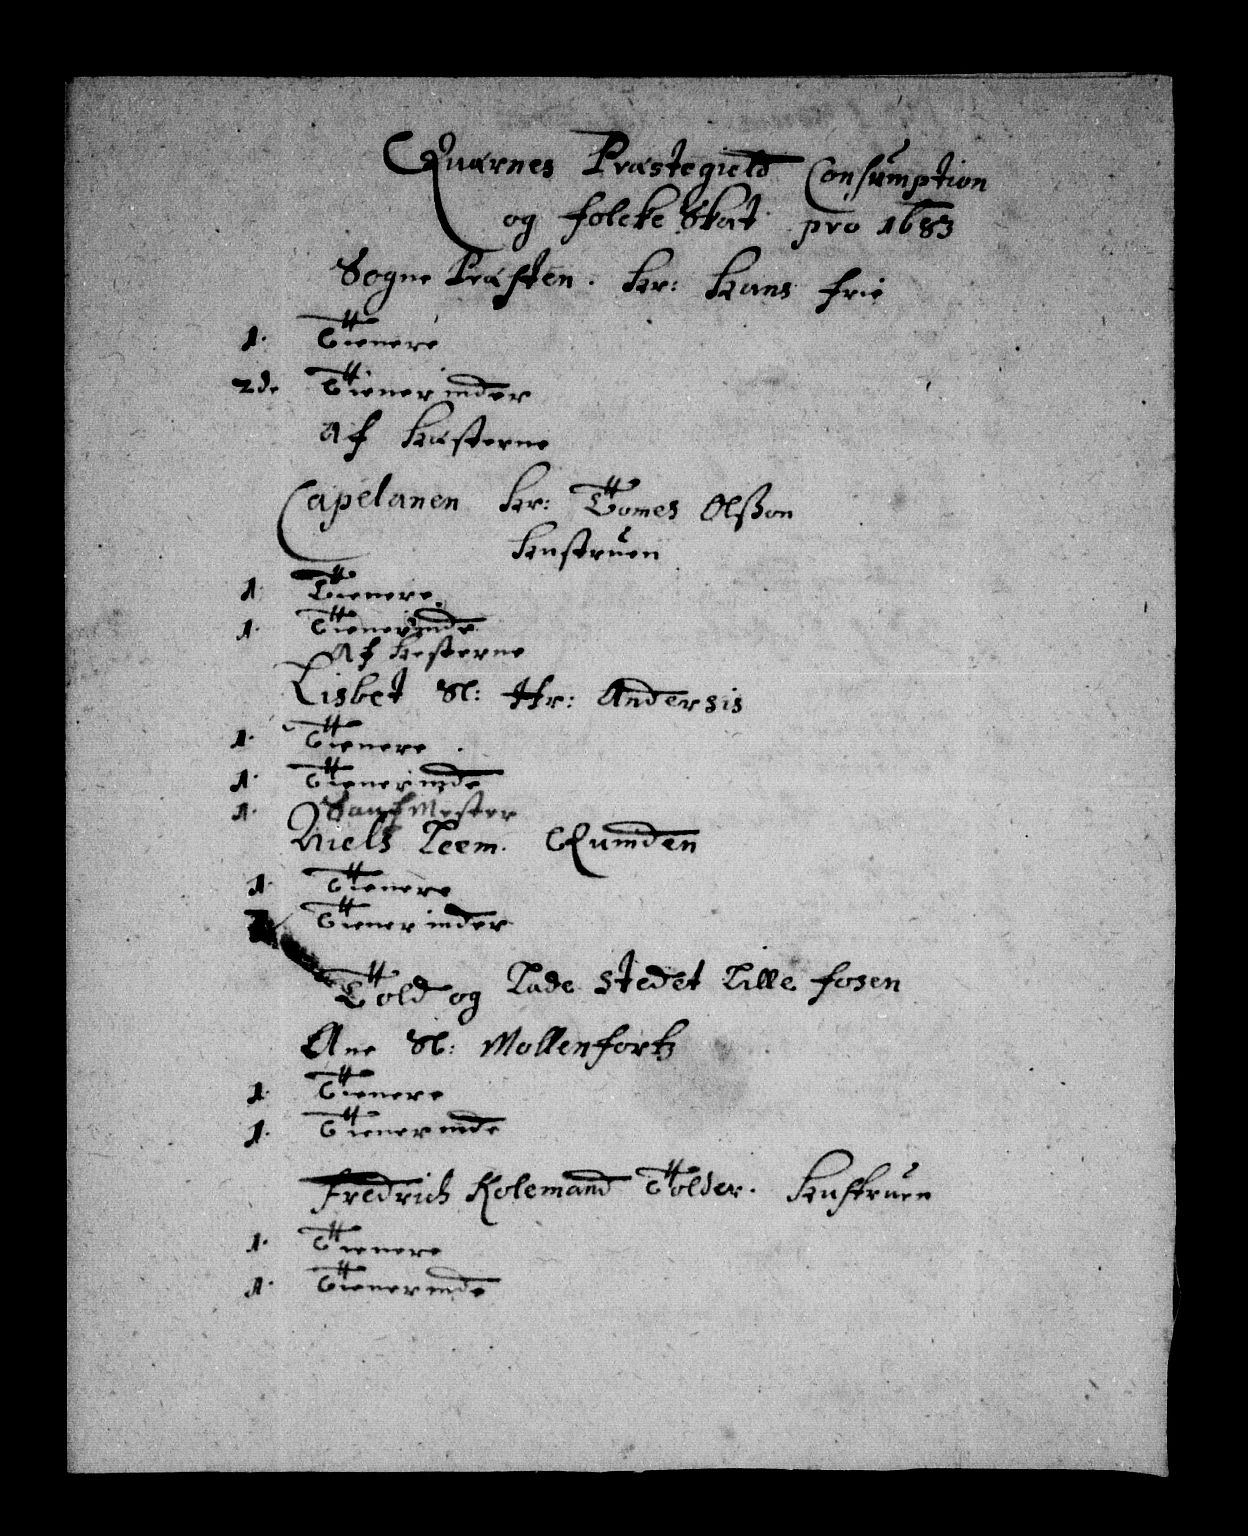 Quærnes Præstegield Consumption
og folcke Skat pro 1683
Sogne Præsten. Hr: Hans frie
1. Tienere
2de Tienerinder
Af Hæsterne
Capelanen Hr: Tomes Olsson
Hustruen
1 Tienere
1. Tienerinde
Af Hesterne
Lisbet Sl: Hr: Andersis
1. Tienere
1. Tienerinde
1. Mester
Niels Leem. Qumden
1. Tienere
Tienerinder
Told og Lade stedet Lille fosen
Ane Sl: Mollenfortz
1. Tienere
1. Tienerinde
fredrich Kolemand Tolder. Hustruen
1. Tienere
1. Tienerinde